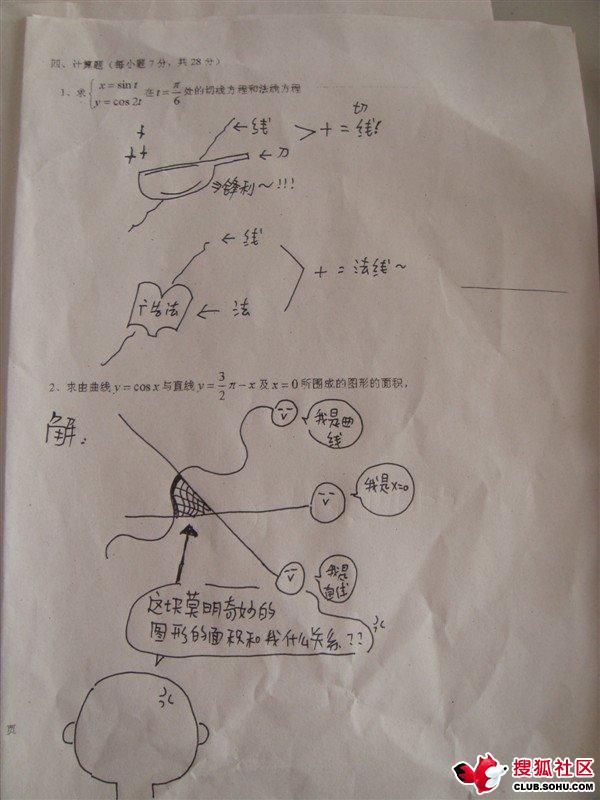 四、计算题（每小题7分，共28分）
1、求{x=sin t y=cos 2t 在 t=π/6 处的切线方程和法线方程
←线
切
> + = 线!
+
++
←刀
⇒锋利~!!!
←线
+ = 法线~
广告法
← 法
2、求由曲线 y=cos x 与直线 y=3/2 π-x 及 x=0 所围成的图形的面积，
解：
我是曲
线
我是x=0
我是
直线
这块莫明奇妙的
图形的面积和我什么关系??
页
搜狐社区
CLUB.SOHU.COM